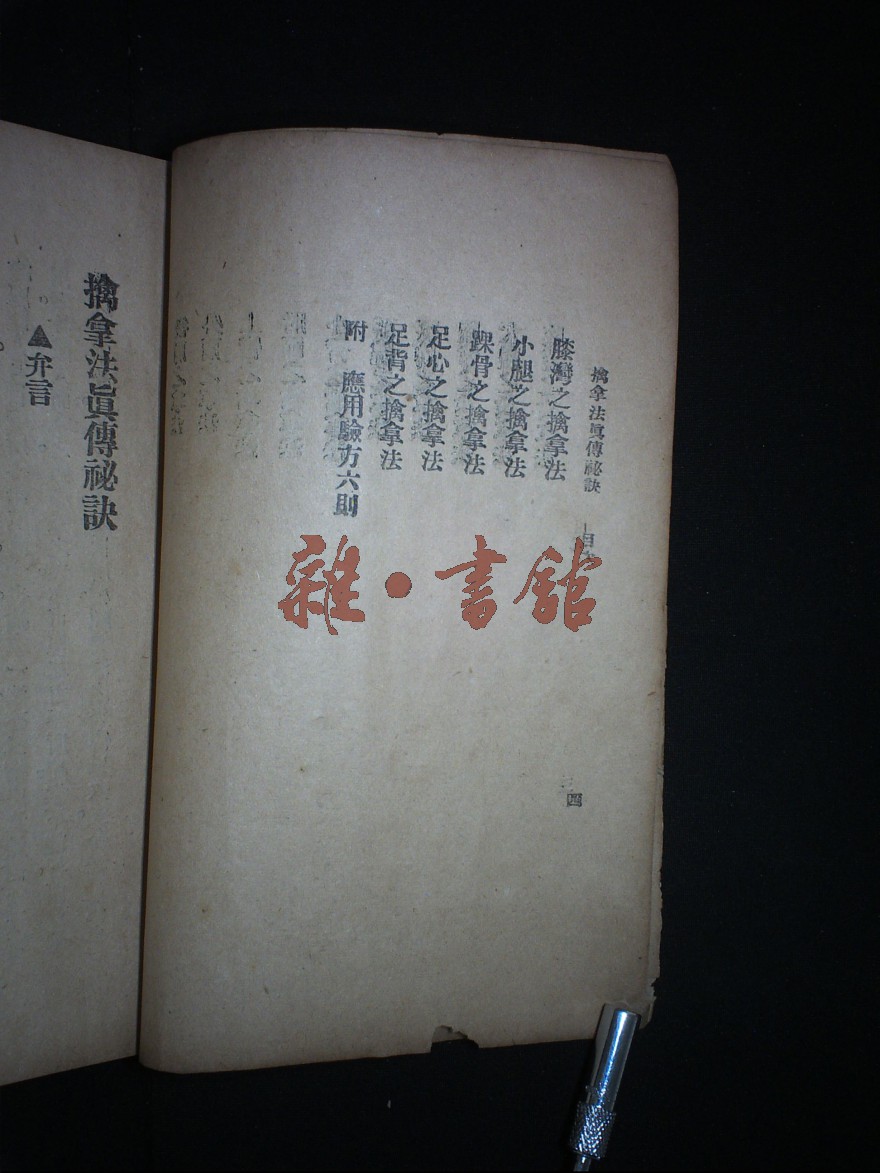 擒拿法眞傳祕訣 目
四
膝灣之擒拿法
小腿之擒拿法
踝骨之擒拿法
足心之擒拿法
足背之擒拿法
附 應用驗方六則
雜·書館
擒拿法眞傳祕訣
▲弁言